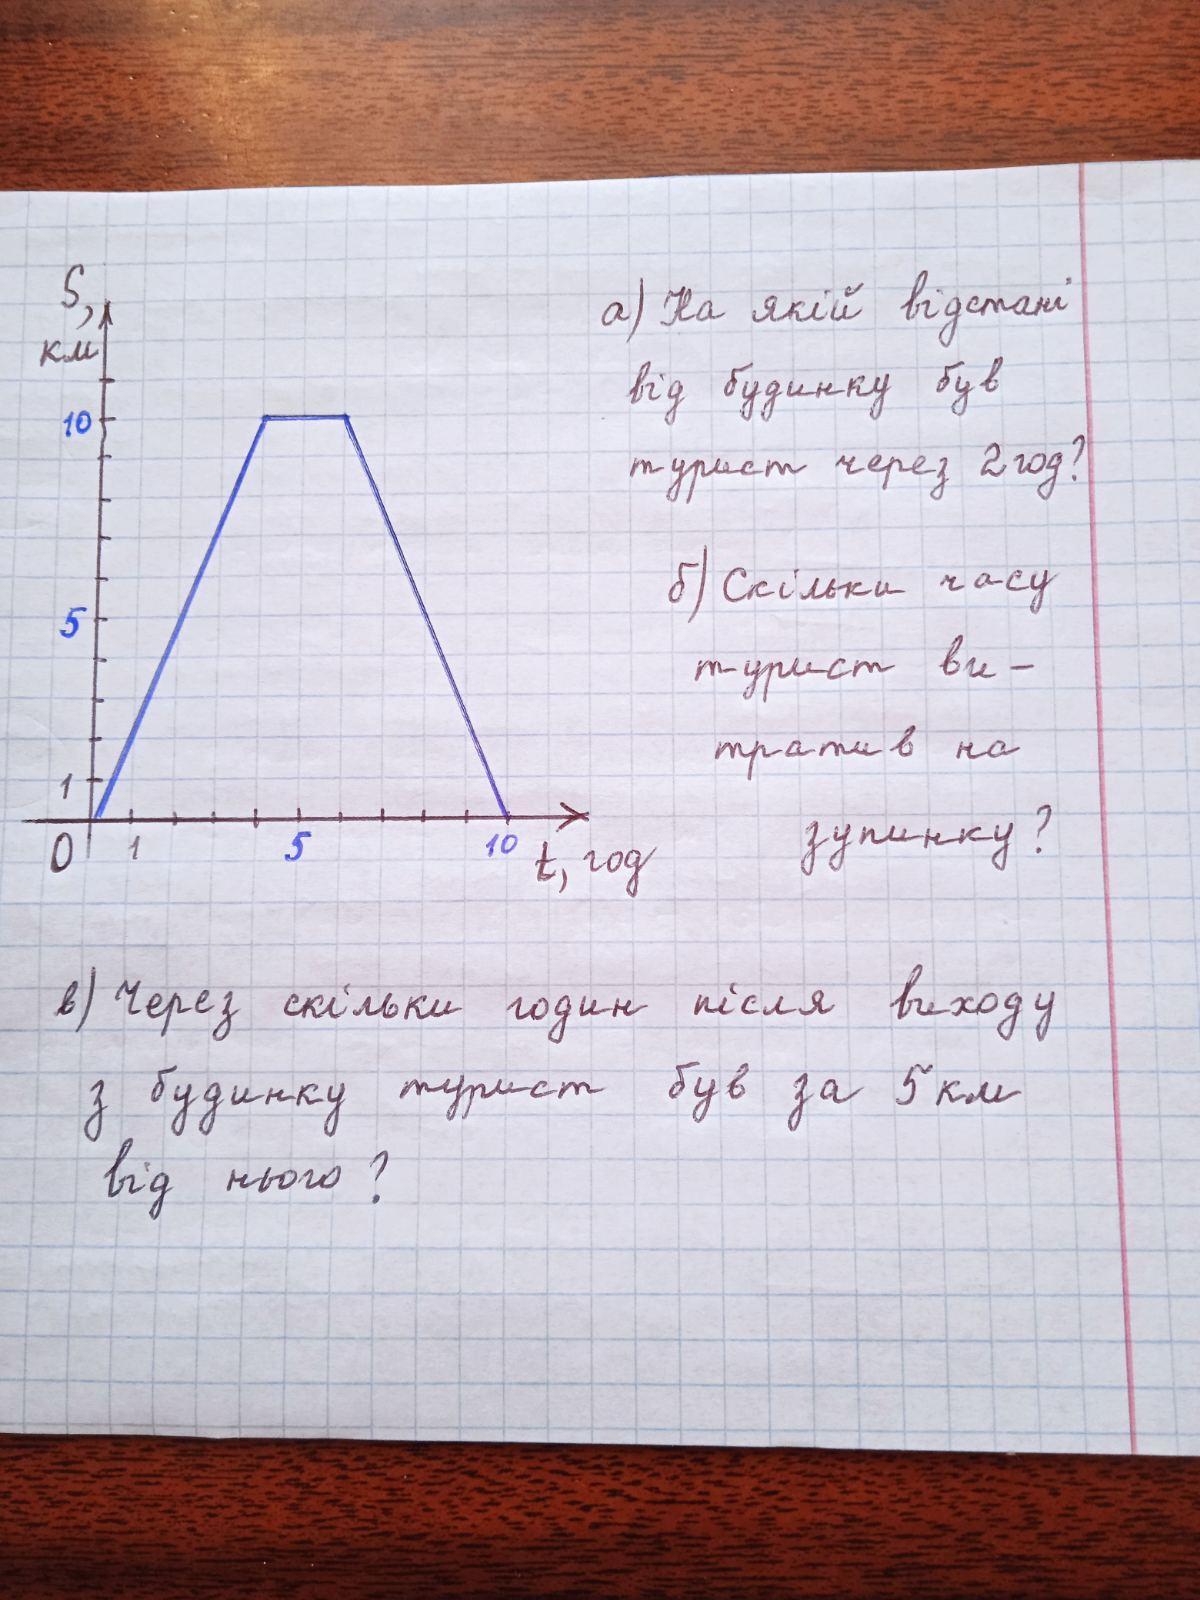 S,
км
10
5
1
0 1 5 10 t, год
а) На якій відстані
від будинку був
турист через 2 год?
б) Скільки часу
турист ви-
тратив на
зупинку?
в) Через скільки годин після виходу
з будинку турист був за 5 км
від нього?